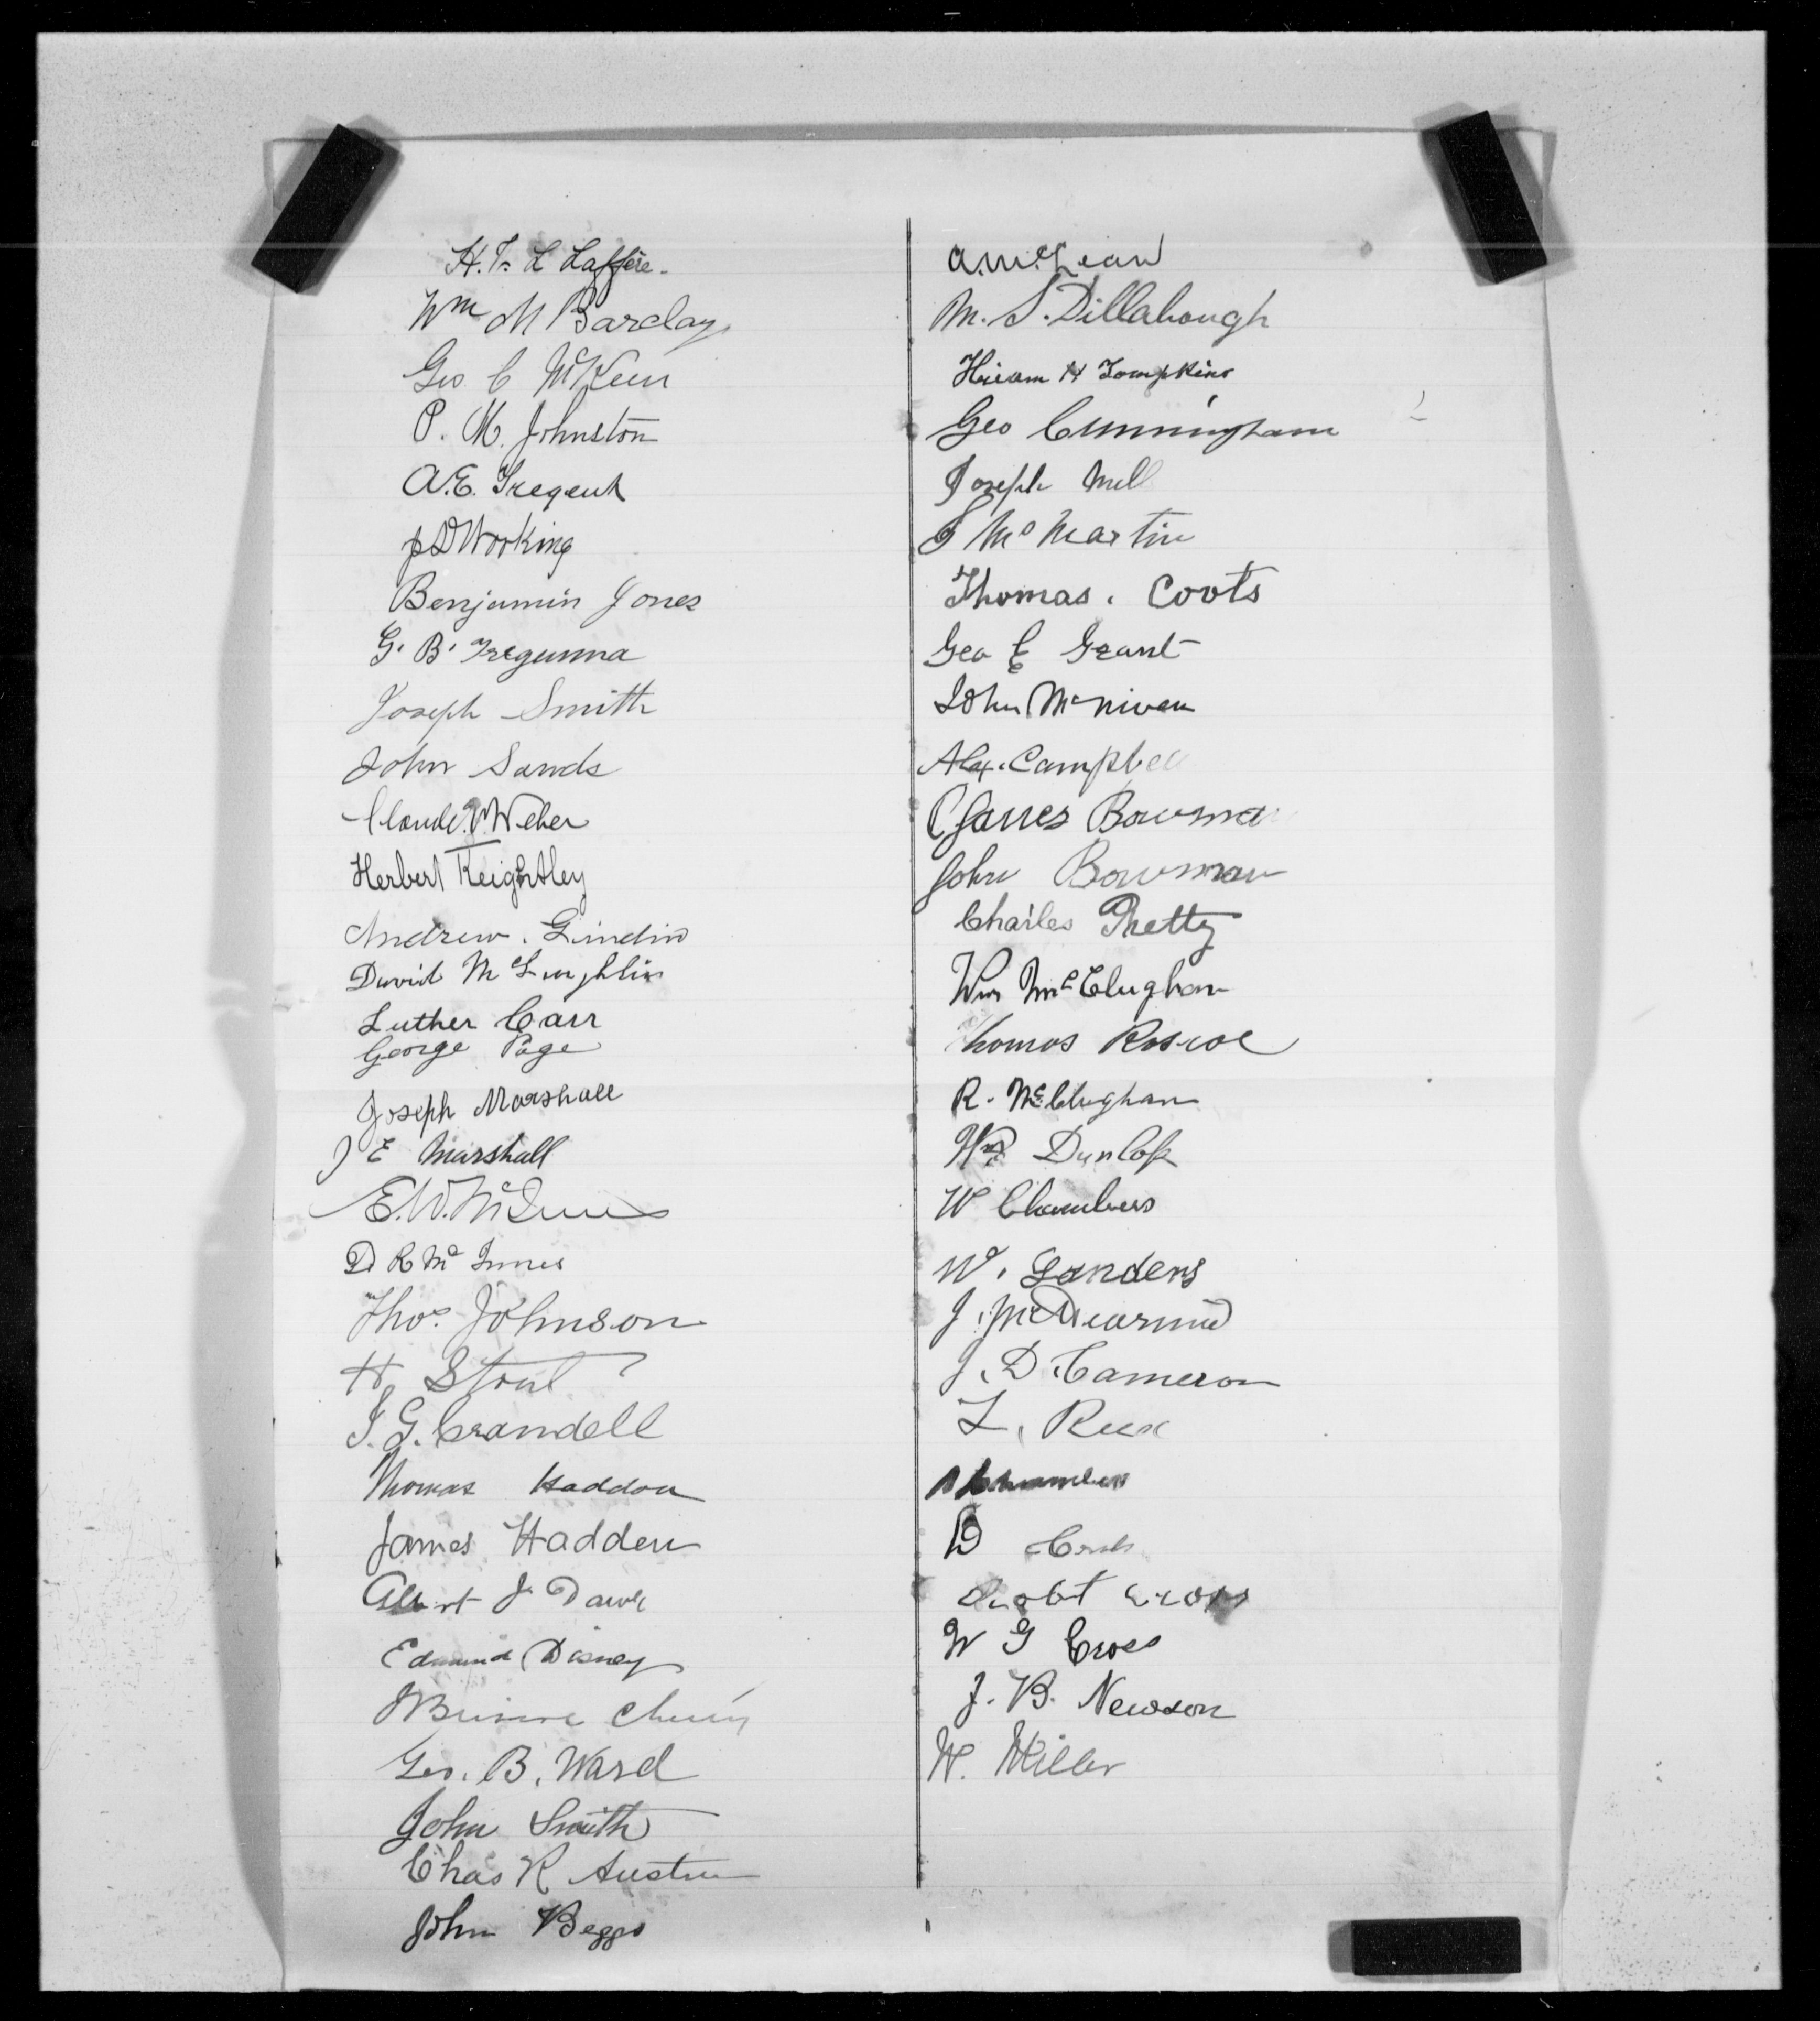 H. T. L Laffere.
Wm M Barclay
Geo C McKeen
P. M. Johnston
A.E. Tregent
J D Working
Benjamin Jones
G. B. Tregunna
Joseph Smith
John Sands
Claude V. Weber
Herbert Keightley
Andrew. Lindin
David McLaughlin
Luther Carr
George Page
Joseph Marshall
J E Marshall
E.W. McInnes
D R Mc Innes
Thos. Johnson
H Stout
J. G. Crandell
Thomas Haddon
James Hadden
Albert J
Edmund Disney
Geo. B. Ward
John Smith
Chas R Austin
John Beggs
A. McLean
M. S. Dillabough
Hiram H Tompkins
Geo Cunningham
Joseph Mill
J McMartin
Thomas. Coots
Geo E Grant
John McNiven
Alex. Campbell
James Bowman
John Bowman
Charles Pretty
Wm McClughan
Thomas Roscoe
R. McClughan
Wm Dunlop
W Chambers
W. Sanders
J. McDearmid
J. D. Cameron
L. Rux
Chambers
D
Cross
W G Cross
J. B. Newson
W. Miller